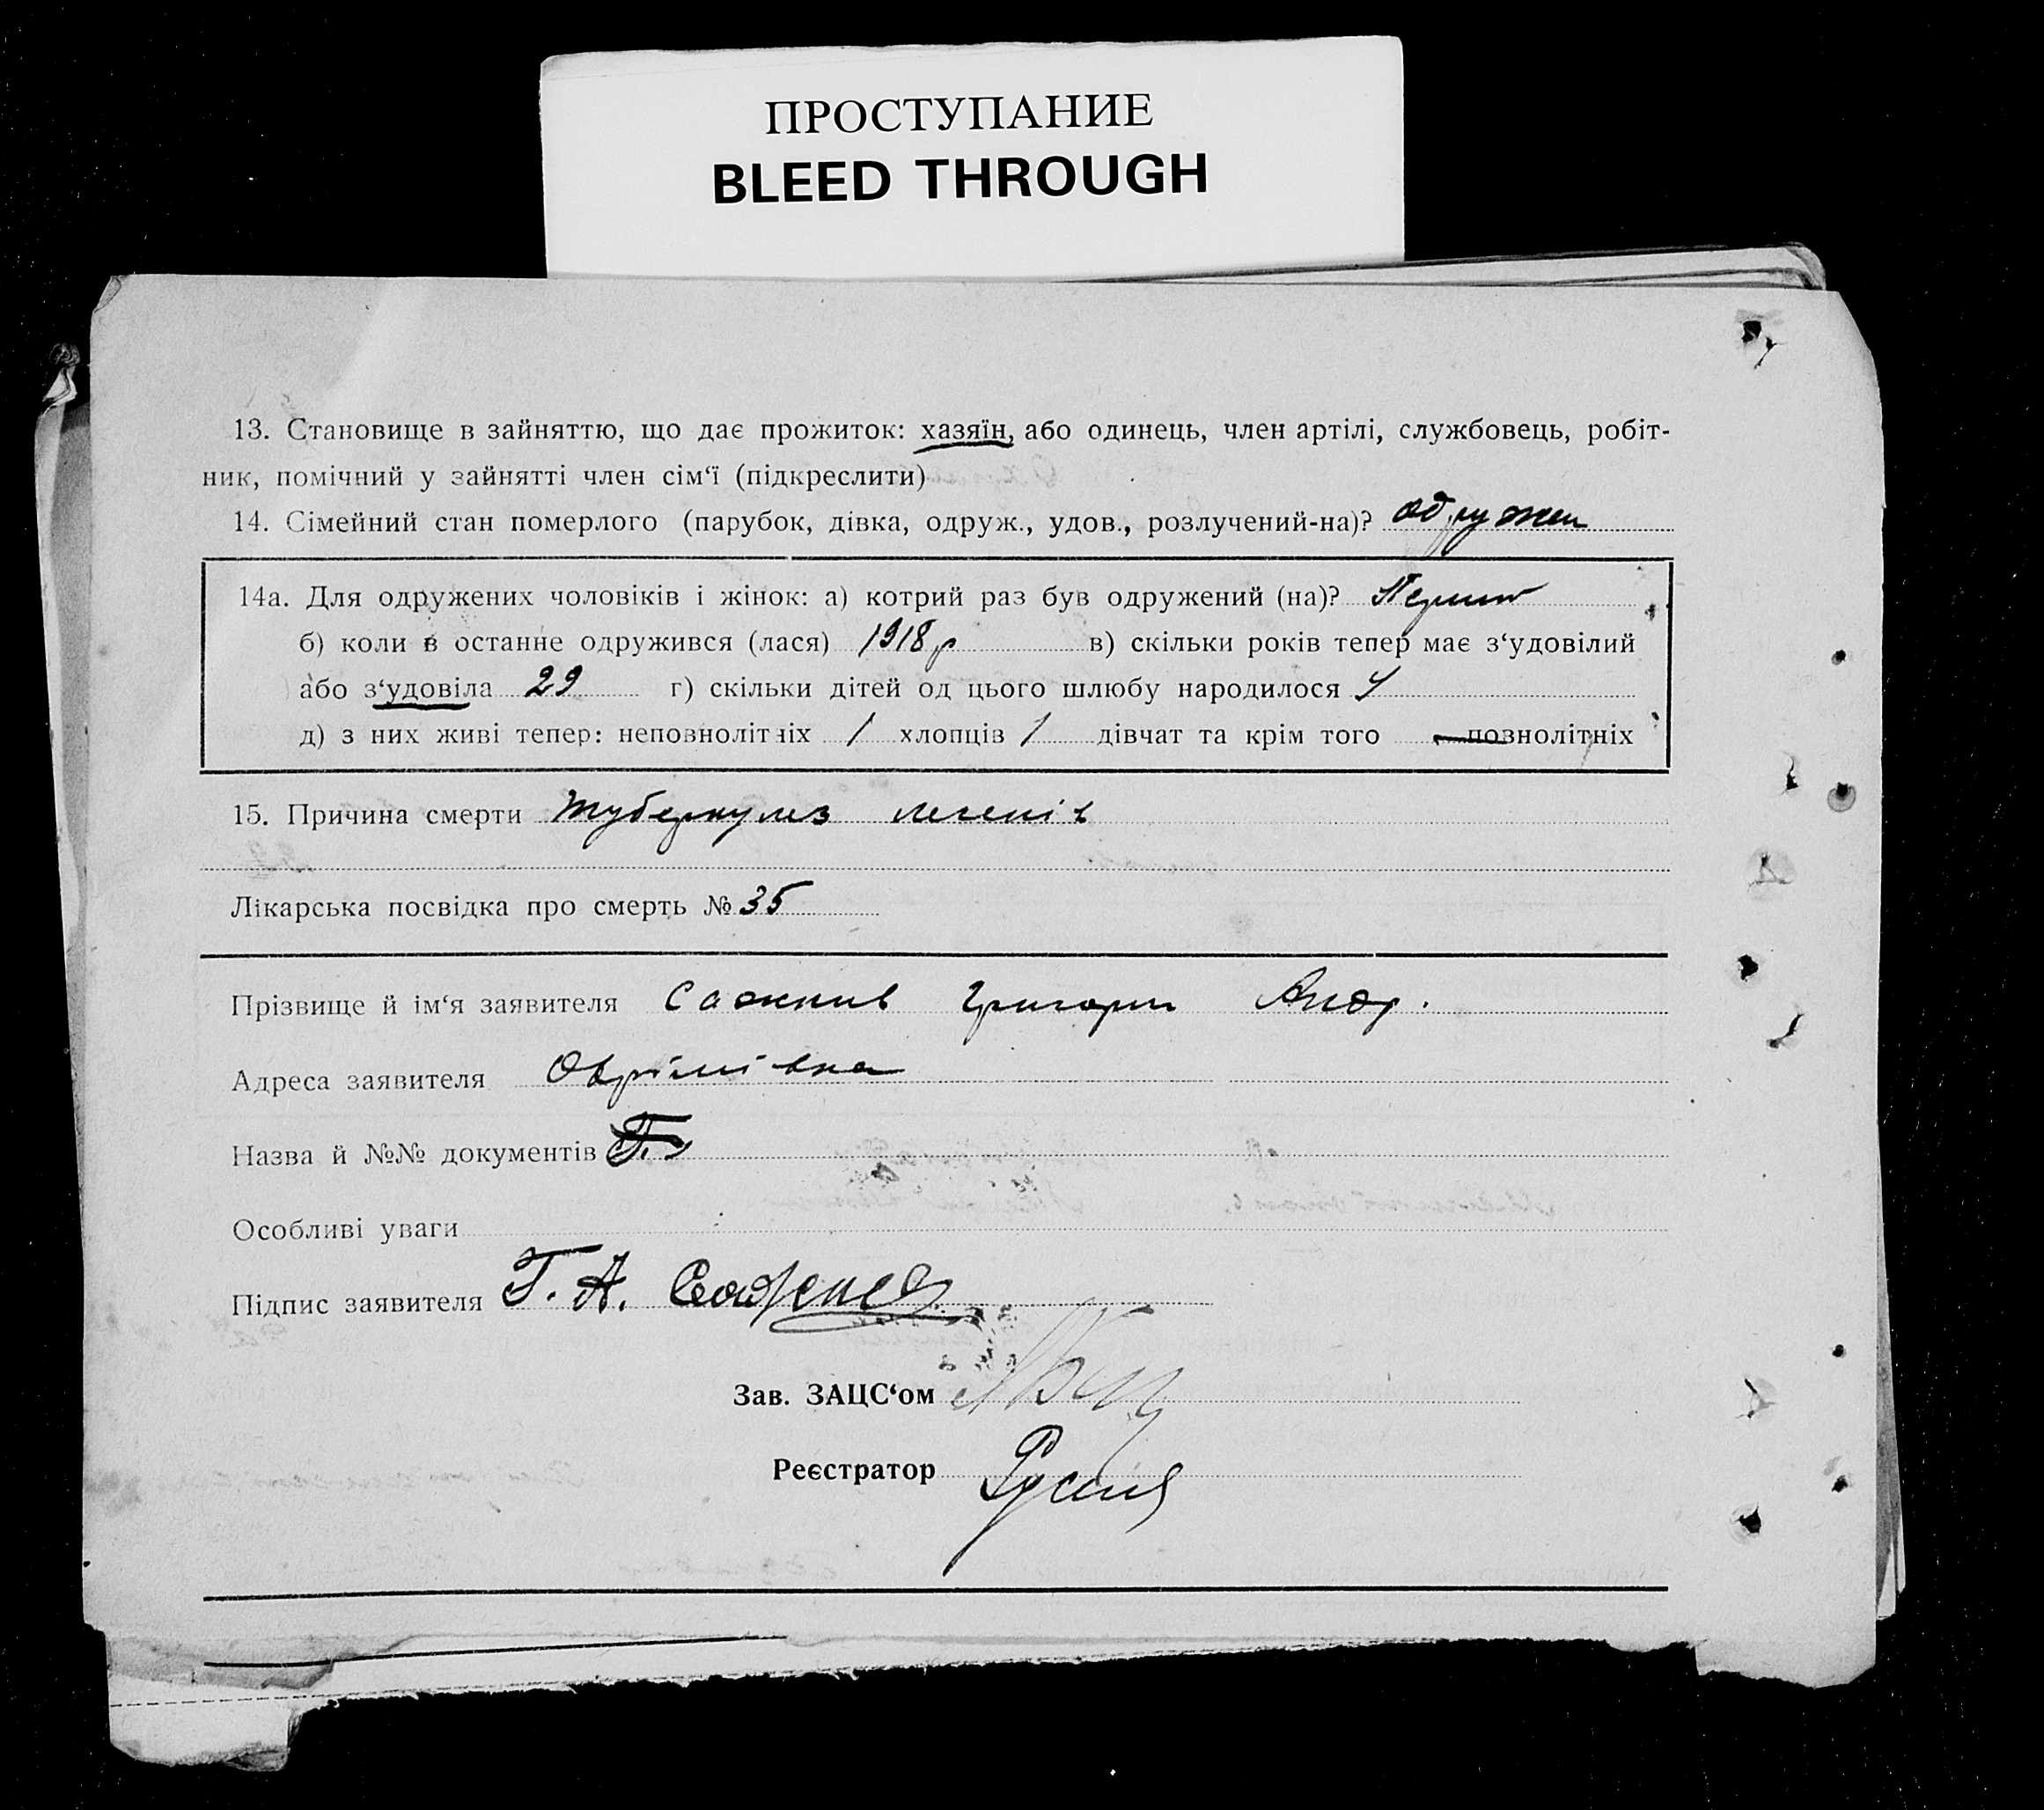 ПРОСТУПАНИЕ
BLEED THROUGH
13. Становище в зайняттю, що дає прожиток: хазяїн, або одинець, член артілі, службовець, робіт-
ник, помічний у зайнятті член сім‘ї (підкреслити)
14. Сімейний стан померлого (парубок, дівка, одруж., удов., розлучений-на)? одружен
14а. Для одружених чоловіків і жінок: а) котрий раз був одружений (на)?
б) коли в останнє одружився (лася) 1918 р в) скільки років тепер має з‘удовілий
або з‘удовіла 29 г) скільки дітей од цього шлюбу народилося
д) з них живі тепер: неповнолітніх 1 хлопців 1 дівчат та крім того — повнолітніх
15. Причина смерти туберкулез легенів
Лікарська посвідка про смерть № 35
Прізвище й ім‘я заявителя Григорій Андр.
Адреса заявителя
Назва й №№ документів
Особливі уваги
Підпис заявителя Г. А.
Зав. ЗАЦС‘ом
Реєстратор